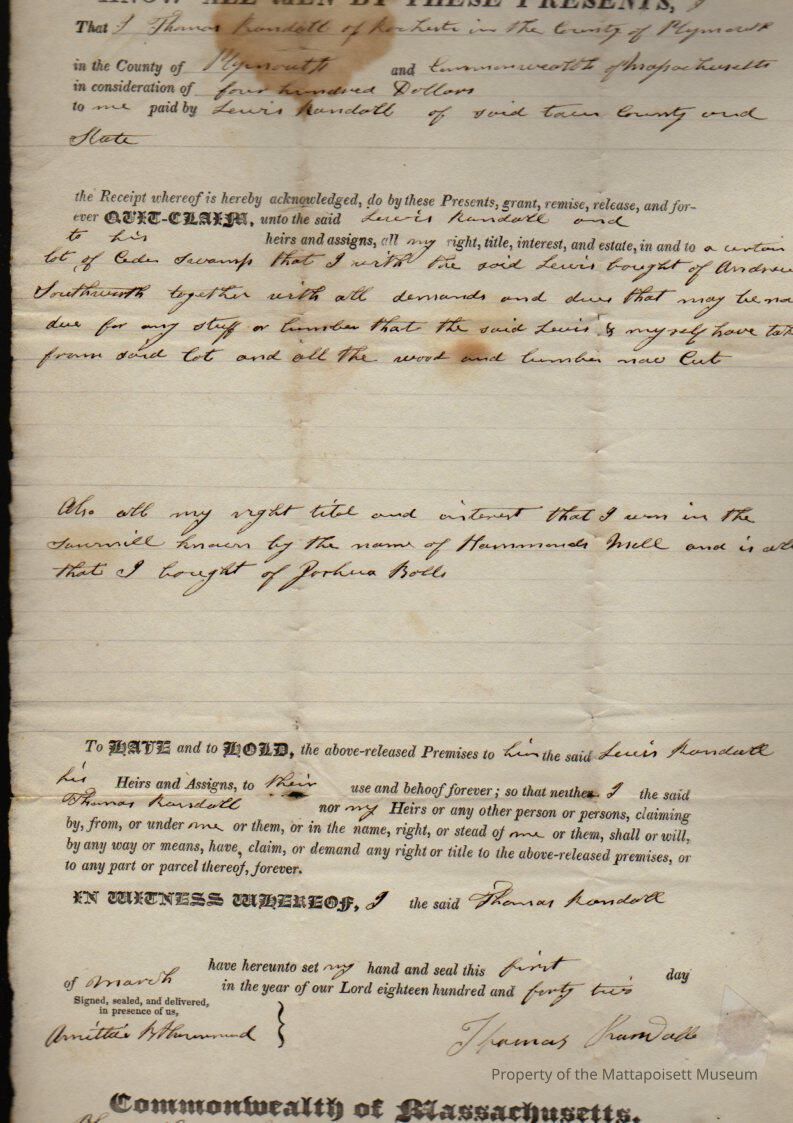 KNOW ALL MEN BY THESE PRESENTS, I
That I Thomas Randall of Rochester in the County of Plymouth
in the County of Plymouth and Commonwealth of Massachusetts
in consideration of four hundred Dollars
to me paid by Lewis Randall of said town County and
State
the Receipt whereof is hereby acknowledged, do by these Presents, grant, remise, release, and for-
ever QUIT-CLAIM, unto the said Lewis Randall and
to his heirs and assigns, all my right, title, interest, and estate, in and to a certain
lot of Ceder Swamp that I with the said Lewis bought of Andrew
Southworth together with all demands and dues that may be no
due for any stuff or lumber that the said Lewis & myself have tak
from said lot and all the wood and lumber now Cut
Also all my right titel and interest that I own in the
sawmill known by the name of Hammonds Mill and is all
that I bought of Joshua Bolls
To HAVE and to HOLD, the above-released Premises to him the said Lewis Randall
his Heirs and Assigns, to their use and behoof forever; so that neither I the said
Thomas Randall nor my Heirs or any other person or persons, claiming
by, from, or under me or them, or in the name, right, or stead of me or them, shall or will,
by any way or means, have, claim, or demand any right or title to the above-released premises, or
to any part or parcel thereof, forever.
IN WITNESS WHEREOF, I the said Thomas Randall
have hereunto set my hand and seal this first day
of March in the year of our Lord eighteen hundred and forty two
Signed, sealed, and delivered,
in presence of us,
Thomas Randall
Property of the Mattapoisett Museum
Commonwealth of Massachusetts.